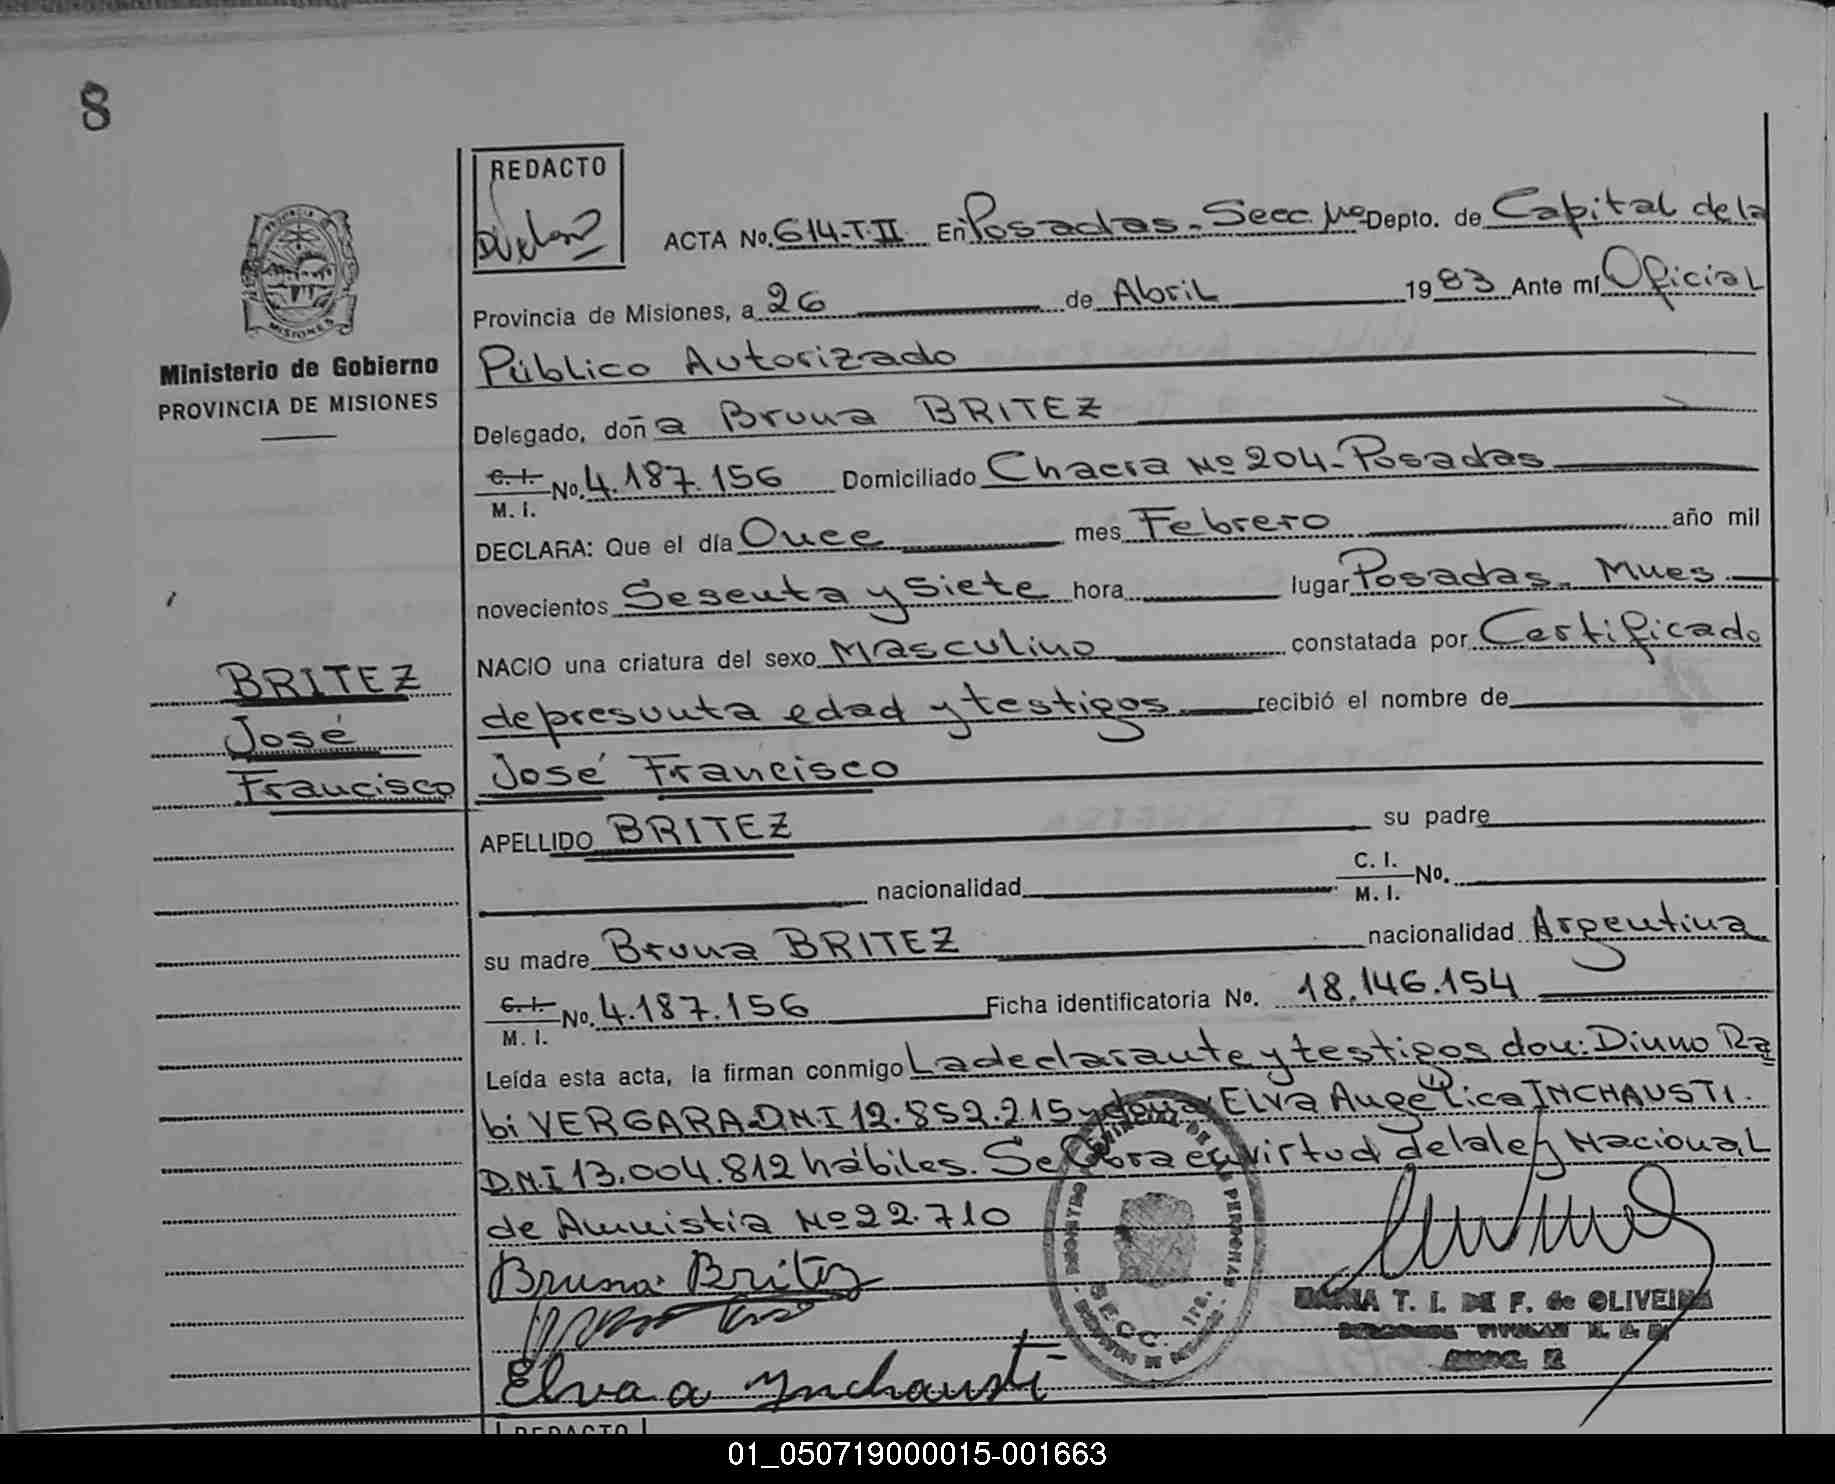 8
REDACTO
ACTA No. 614-T.II En Posadas - Secc. 1ª Depto. de Capital de la
Provincia de Misiones, a 26 de Abril 1983 Ante mí Oficial
Público Autorizado
Ministerio de Gobierno
PROVINCIA DE MISIONES
MISIONES
Delegado, doña Bruna BRITEZ
C. I.
M. I. No. 4.187.156 Domiciliado Chacra Nº 204 - Posadas
DECLARA: Que el día Once mes Febrero año mil
novecientos Sesenta y Siete hora lugar Posadas. Mnes
NACIO una criatura del sexo Masculino constatada por Certificado
de presunta edad y testigos recibió el nombre de
BRITEZ
José
Francisco
José Francisco
APELLIDO BRITEZ su padre
nacionalidad C. I.
M. I. No.
su madre Bruna BRITEZ nacionalidad Argentina
C. I.
M. I. No. 4.187.156 Ficha identificatoria No. 18.146.154
Leída esta acta, la firman conmigo La declarante y testigos don: Diuno Ra=
bi VERGARA D.N.I 12.852.215 y doña Elva Angélica INCHAUSTI.
D.N.I 13.004.812 hábiles. Se labra en virtud de la ley Nacional
de Amnistia Nº 22.710
Bruna Britez
Elva a Ynchausti
SECC. 1ra.
MARIA T. I. DE F. de OLIVEIRA
REDACTO
01_050719000015-001663